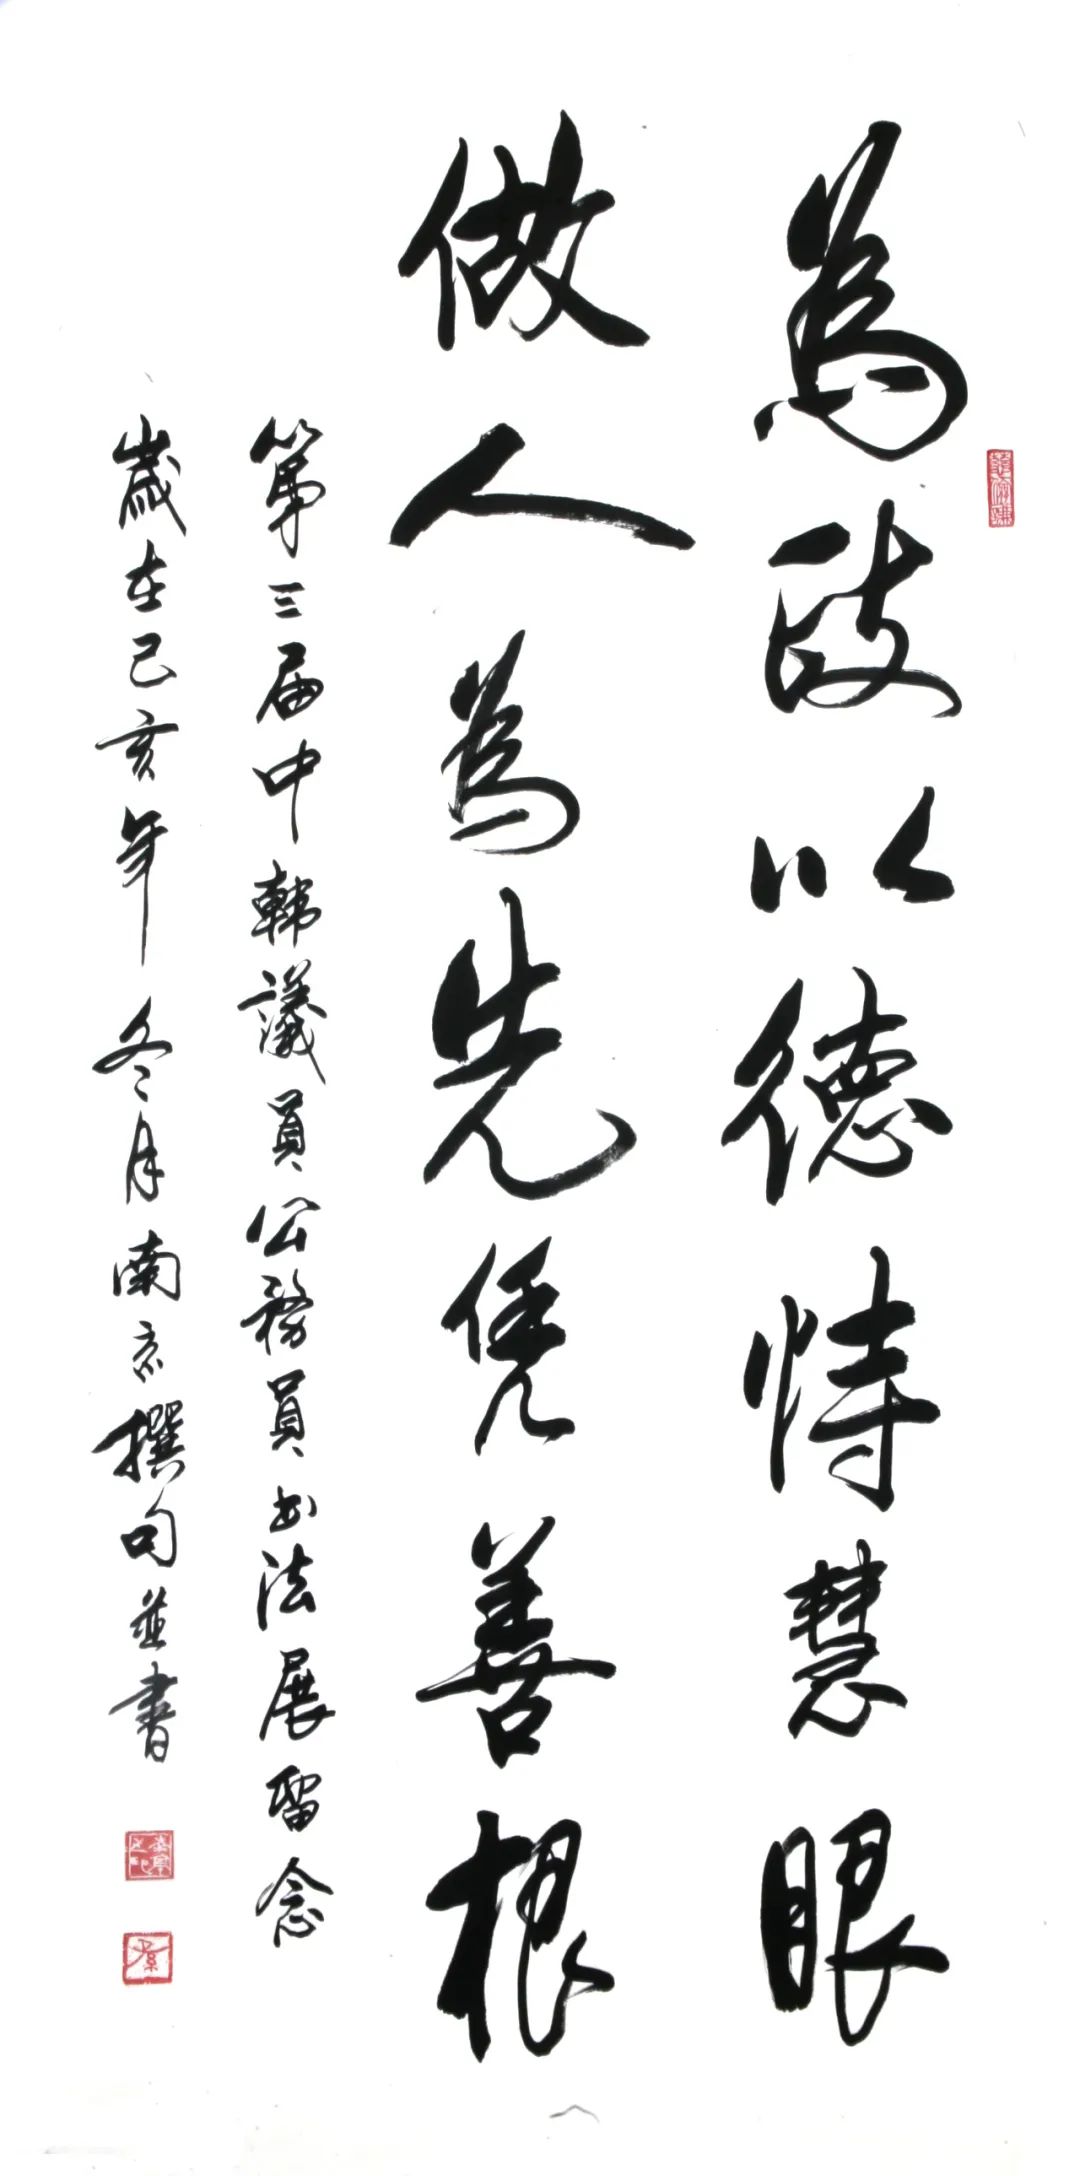 為政以德恃慧眼
做人為先凭善根
第三届中韩議員公務員书法展留念
歲在己亥年冬月南京撰句並書